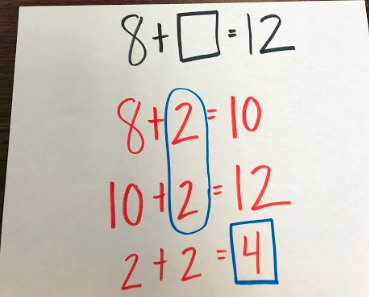 8+□=12
8+2=10
10+2=12
2+2=4